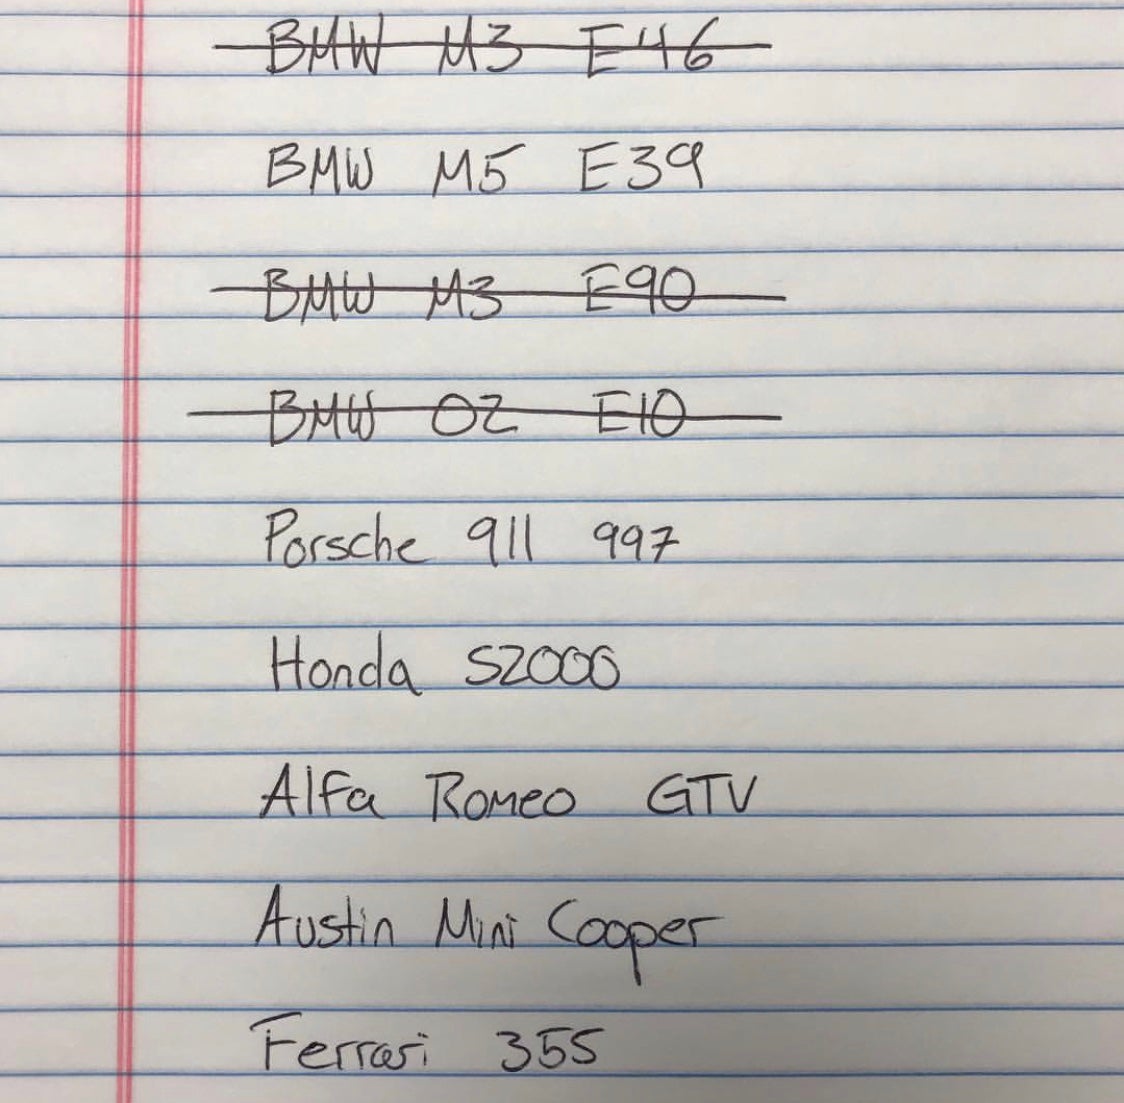 BMW M3 E46
BMW M5 E39
BMW M3 E90
BMW 02 E10
Porsche 911 997
Honda S2000
Alfa Romeo GTV
Austin Mini Cooper
Ferrari 355